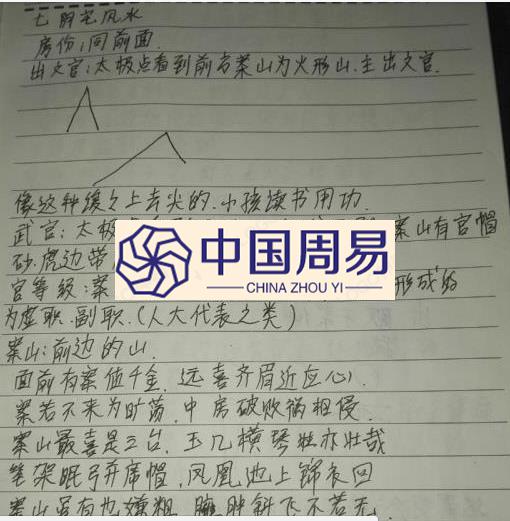 七 阴宅风水
房份:同前面.
出文官:太极点看到前与案山为火形山.主出文官.
像这种缓之上去尖的.小孩读书用功.
武官:太极点 案山有官帽
砂.虎边带
中国周易
CHINA ZHOU YI
官等级:案 形成的
为虚职.副职.(人大代表之类)
案山:前边的山.
面前有案值千金.远喜齐眉近应心.
案若不来为旷荡.中房破败祸相侵.
案山最喜是三台.玉几横琴壮亦壮哉
笔架眠弓并席帽.凤凰池上锦衣回
案山虽有也嫌粗.臃肿斜飞不若无.